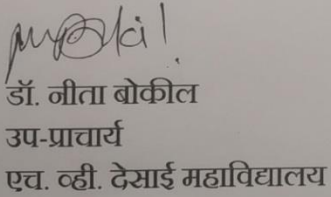 डॉ. नीता बोकील
उप-प्राचार्य
एच. व्ही. देसाई महाविद्यालय